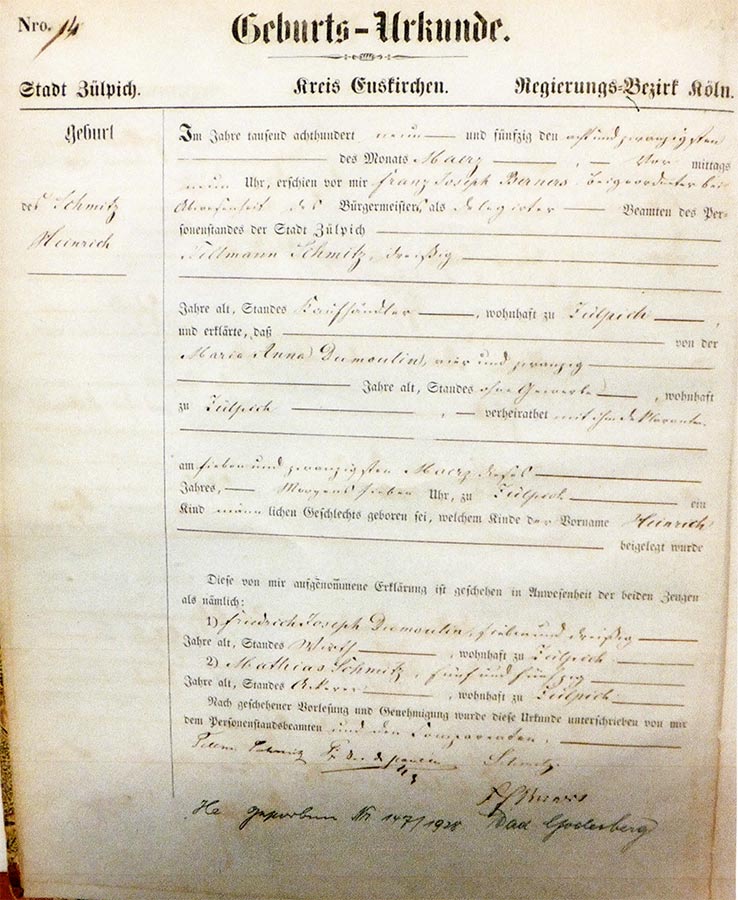 Nro. 74
Geburts-Urkunde.
Stadt Zülpich. Kreis Euskirchen. Regierungs-Bezirk Köln.
Geburt
des Schmitz
Heinrich
Im Jahre tausend achthundert neun und fünfzig den acht und zwanzigsten
des Monats Maerz, Vor mittags
neun Uhr, erschien vor mir Franz Joseph Berners Beigeordneter bei
Abwesenheit des Bürgermeisters als delegirter Beamten des Per-
sonenstandes der Stadt Zülpich
Tillmann Schmitz, dreißig
Jahre alt, Standes Kaufhändler, wohnhaft zu Zülpich,
und erklärte, daß von der
Maria Anna Dumoulin, vier und zwanzig
Jahre alt, Standes ohne Gewerbe, wohnhaft
zu Zülpich, verheirathet mit ihm deklaranten
am sieben und zwanzigsten Maerz dieses
Jahres, Morgens sieben Uhr, zu Zülpich ein
Kind männlichen Geschlechts geboren sei, welchem Kinde der Vorname Heinrich
beigelegt wurde
Diese von mir aufgenommene Erklärung ist geschehen in Anwesenheit der beiden Zeugen
als nämlich:
1) Friedrich Joseph Dumoulin, sieben und dreißig
Jahre alt, Standes Wirth, wohnhaft zu Zülpich
2) Mathias Schmitz, fünf und fünfzig
Jahre alt, Standes Ackerer, wohnhaft zu Zülpich
Nach geschehener Vorlesung und Genehmigung wurde diese Urkunde unterschrieben von mir
dem Personenstandsbeamten und den Comparenten.
Schmitz Schmitz
gestorben Nr 147/1928 Bad Godesberg